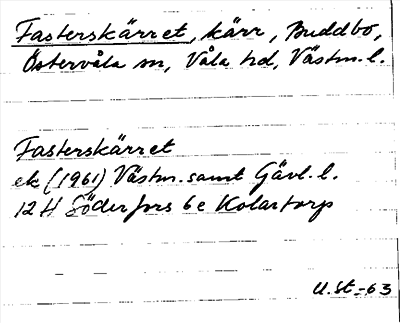 Fasterskärret, kärr, Buddbo,
Östervåla sn, Våla hd, Västm. l.
Fasterskärret
ek (1961) Västm. samt Gävl. l.
12 H Söderfors 6 e Kolartorp
U. St -63